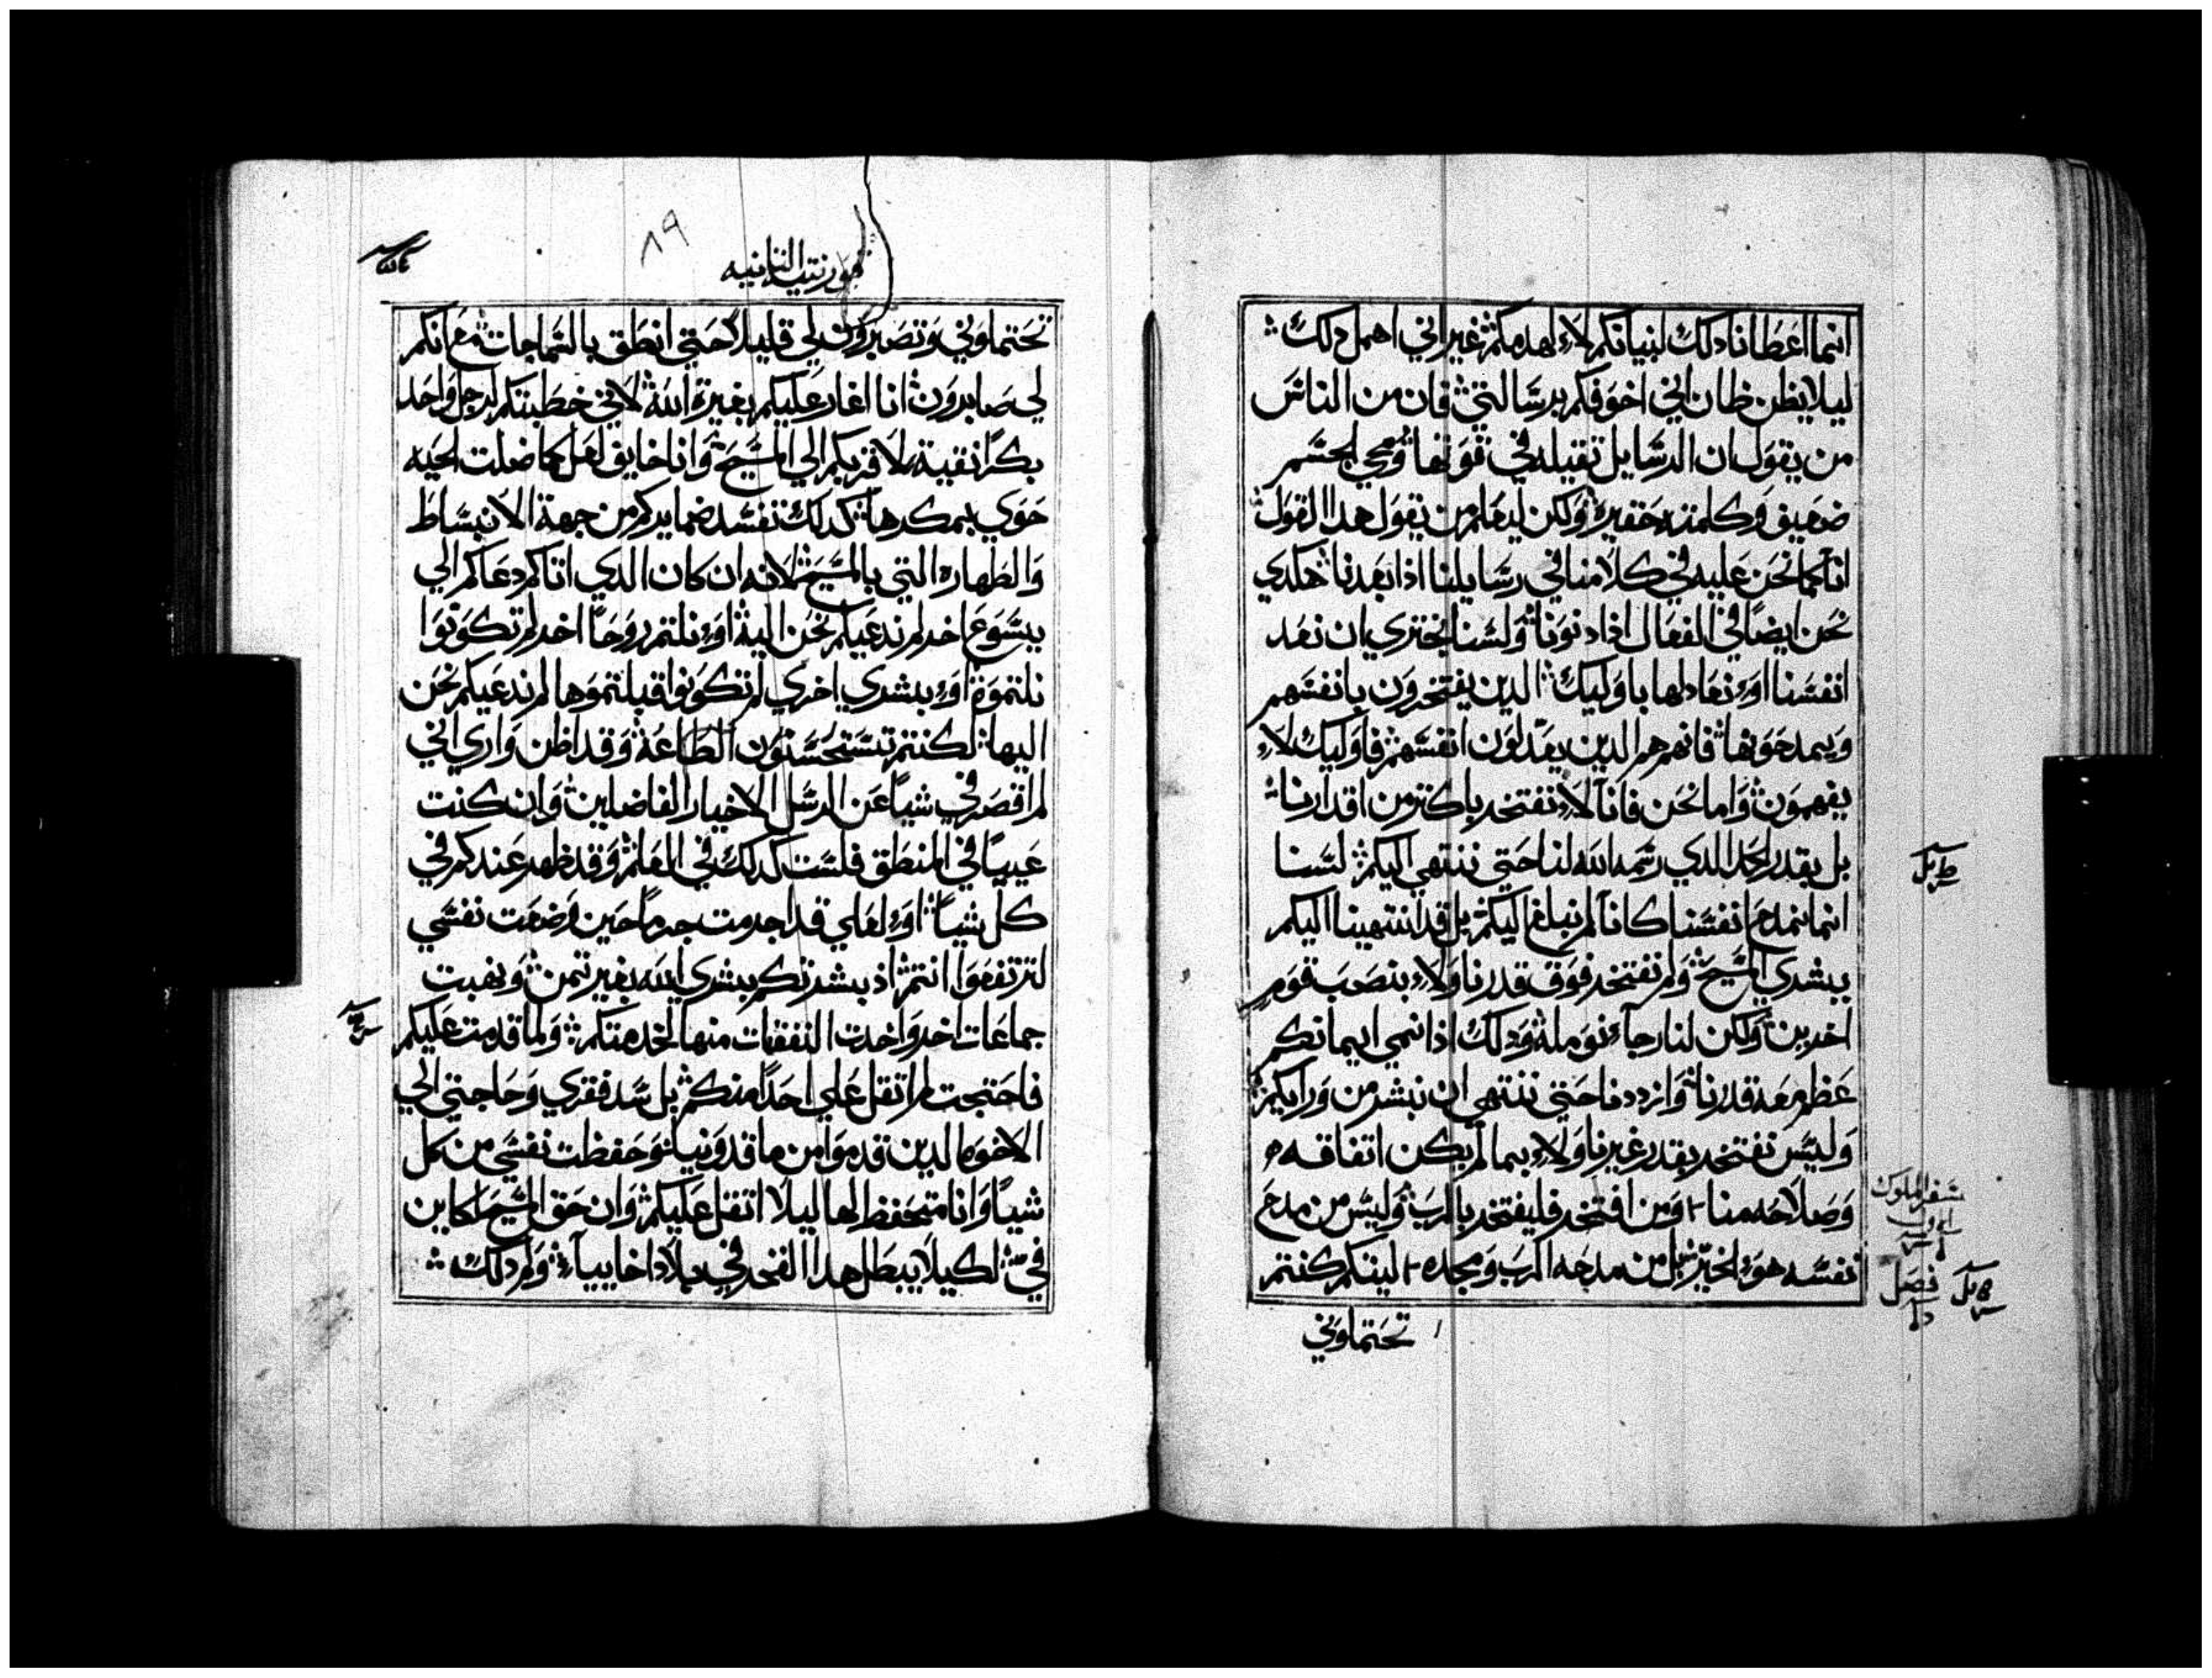 انما اعطانا دلك لبنيانكم لا لهدمكم غير اني اهمل دلك
ليلا يظن ظان اني اخوفكم برسالتي فان من الناس
من يقول ان الرسايل تقيله في قوتها ومجي الجسم
ضعيف وكلمته حقيره ولكن ليعلم من يقول هدا القول
انا كما نحن عليه في كلامنا في رسايلنا اذا بعدنا هكدي
نحن ايضا في الفعال اذا دنونا ولسنا نجتري ان نعد
انفسنا او نعادلها باوليك الدين يفتخرون بانفسهم
ويمدحونها فانهم هم الدين يعدلون انفسهم فاوليك لا
يفهمون واما نحن فانا لا نفتخر باكتر من اقدارنا
بل بقدر الحد الدي رسمه الله لنا حتي ننتهي اليكم لسنا
انما نمدح انفسنا كانا لم نبلغ اليكم بل قد انتهينا اليكم
ببشري المسيح ولم نفتخر فوق قدرنا ولا بنصب قوم
اخرين ولكن لنا رجاء نومله ودلك اذا نمي ايمانكم
عظم معه قدرنا وازددنا حتي ننتهي ان نبشر من ورايكم
وليس نفتخر بقدر غيرنا ولا بما لم يكن اتفاقه
وصلاحه منا ومن افتخر فليفتخر بالرب وليس من مدح
نفسه هو الخير بل من مدحه الرب ومجده ليتكم كنتم
تحتماوني
سفر الملوك
فصل
قورنتيه الثانيه
٨٩
تحتماوني وتصبرون لي قليلا حتي انطق بالسماجات مع انكم
لي صابرون انا اغار عليكم بغيرة الله لاني خطبتكم لرجل واحد
بكرا نقية لاقربكم الي المسيح وانا خايف لعل كما ضلت الحيه
حوي بمكرها كدلك تفسد ضمايركم من جهة الانبساط
والطهاره التي بالمسيح لانه ان كان الدي اتاكم دعاكم الي
يسوع اخر لم ندعيكم نحن اليه او نلتم روحا اخر لم تكونوا
نلتموه او ببشري اخري لم تكونوا قبلتموها لم ندعيكم نحن
اليها لكنتم تستحسنون الطاعه وقد اظن واري اني
لم اقصر في شيا عن الرسل الاخيار الفاضلين وان كنت
عييا في المنطق فلست كدلك في العلم وقد ظهر عندكم في
كل شيا او لعلي قد اجرمت جرما حين وضعت نفسي
لترتفعوا انتم اذ بشرتكم ببشري الله بغير تمن ونهبت
جماعات اخر واخدت النفقات منها لخدمتكم ولما قدمت عليكم
فاحتجت لم اتقل علي احدا منكم بل سد فقري وحاجتي الي
الاخوه الدين قدموا من ماقدونيا وحفظت نفسي من كل
شيا وانا متحفظ لها ليلا اتقل عليكم وان حق المسيح لكاين
في لكيلا يبطل هدا الفخر في بلاد اخاييا ولم دلك